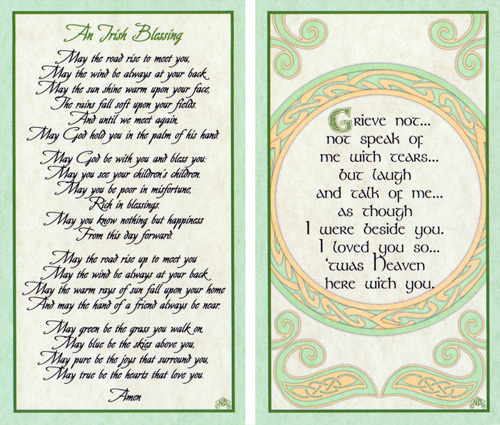 An Irish Blessing
May the road rise to meet you,
May the wind be always at your back.
May the sun shine warm upon your face,
The rains fall soft upon your fields.
And until we meet again,
May God hold you in the palm of his hand.
May God be with you and bless you:
May you see your children's children.
May you be poor in misfortune,
Rich in blessings.
May you know nothing but happiness
From this day forward.
May the road rise up to meet you
May the wind be always at your back
May the warm rays of sun fall upon your home
And may the hand of a friend always be near.
May green be the grass you walk on,
May blue be the skies above you,
May pure be the joys that surround you,
May true be the hearts that love you.
Amen
Grieve not...
not speak of
me with tears...
but laugh
and talk of me...
as though
I were beside you.
I loved you so...
'twas Heaven
here with you.